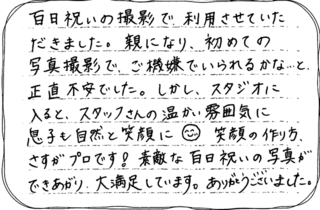 百日祝いの撮影で利用させていた
だきました。親になり、初めての
写真撮影で、ご機嫌でいられるかな…と、
正直不安でした。しかし、スタジオに
入ると、スタッフさんの温かい雰囲気に
息子も自然と笑顔に 笑顔の作り方、
さすがプロです！素敵な百日祝いの写真が
できあがり、大満足しています。ありがとうございました。